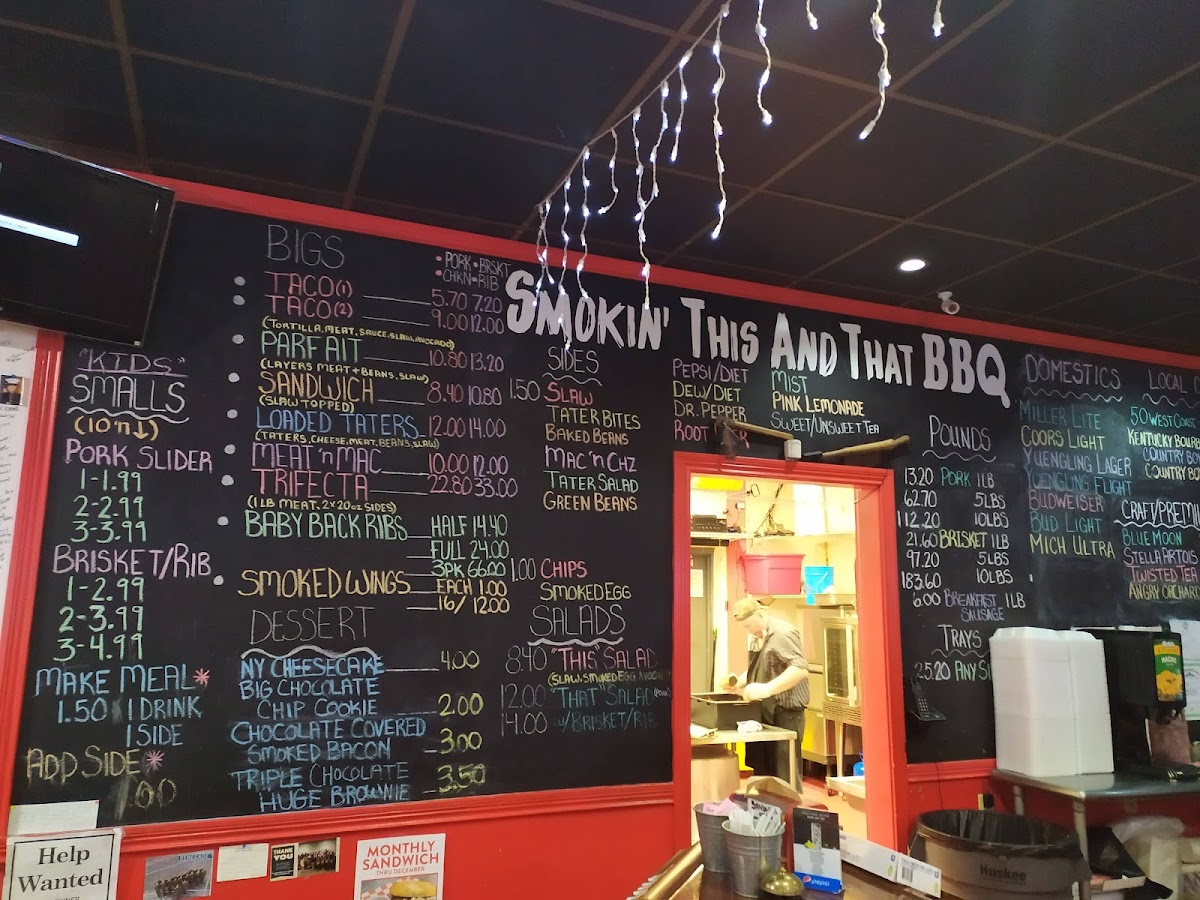 SMOKIN' THIS AND THAT BBQ
"KIDS"
SMALLS
(10 'n ↓)
PORK SLIDER
1-1.99
2-2.99
3-3.99
BRISKET/RIB
1-2.99
2-3.99
3-4.99
MAKE MEAL*
1.50 1 DRINK
1 SIDE
ADD SIDE*
1.00
BIGS
• PORK • BRSKT
• CHKN • RIB
TACO (1) 5.70 7.20
TACO (2) 9.00 12.00
(TORTILLA, MEAT, SAUCE, SLAW, AVOCADO)
PARFAIT 10.80 13.20
(LAYERS MEAT + BEANS, SLAW)
SANDWICH 8.40 10.80
(SLAW TOPPED)
LOADED TATERS 12.00 14.00
(TATERS, CHEESE, MEAT, BEANS, SLAW)
MEAT 'n MAC 10.00 12.00
TRIFECTA 22.80 33.00
(1 LB MEAT, 2x20oz SIDES)
BABY BACK RIBS HALF 14.40
FULL 24.00
3PK 66.00
SMOKED WINGS EACH 1.00
16/ 12.00
DESSERT
NY CHEESECAKE 4.00
BIG CHOCOLATE
CHIP COOKIE 2.00
CHOCOLATE COVERED
SMOKED BACON 3.00
TRIPLE CHOCOLATE
HUGE BROWNIE 3.50
SIDES
1.50 SLAW
TATER BITES
BAKED BEANS
MAC 'n CHZ
TATER SALAD
GREEN BEANS
1.00 CHIPS
SMOKED EGG
SALADS
8.40 "THIS SALAD
(SLAW, SMOKED EGG
12.00 "THAT" SALAD
14.00 W/BRISKET/RIB
PEPSI/DIET
DEW/DIET
DR. PEPPER
ROOT
MIST
PINK LEMONADE
SWEET/UNSWEET TEA
POUNDS
13.20 PORK 1LB
62.70 5LBS
112.20 10LBS
21.60 BRISKET 1LB
97.20 5LBS
183.60 10LBS
6.00 BREAKFAST 1LB
SAUSAGE
TRAYS
25.20 ANY
DOMESTICS
MILLER LITE
COORS LIGHT
YUENGLING LAGER
YUENGLING FLIGHT
BUDWEISER
BUD LIGHT
MICH ULTRA
LOCAL
50 WEST COAST
KENTUCKY BOURB
COUNTRY BOY
COUNTRY BO
CRAFT/PREMI
BLUE MOON
STELLA ARTOIS
TWISTED TEA
ANGRY ORCHARD
Help
Wanted
THANK
YOU
MONTHLY
SANDWICH
THRU DECEMBER
pepsi
Huskee